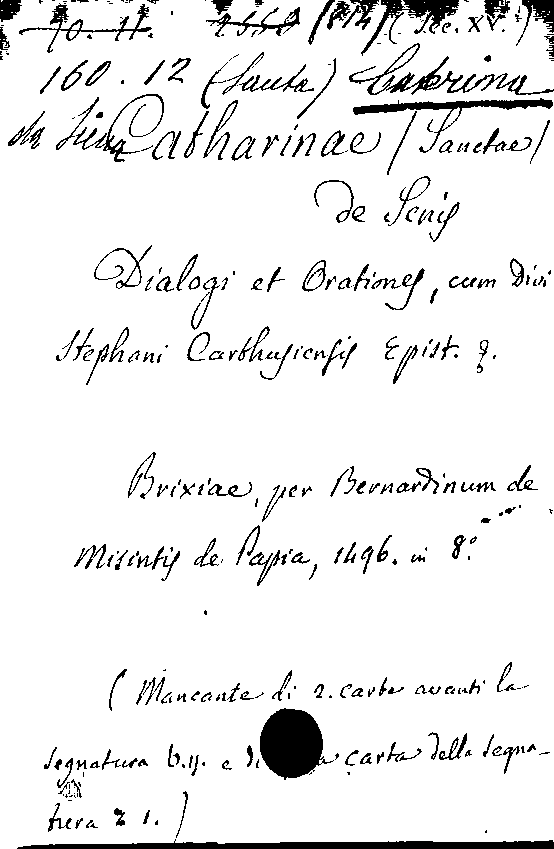 70. 11. 2558 /814/ (Sec. XV.)
160. 12 (Santa) Caterina
da Siena Catharinae /Sanctae/
de Senis
Dialogi et Orationes, cum Divi
Stephani Carthusiensis Epist. &.
Brixiae, per Bernardinum de
Misintis de Papia, 1496. in 8.º
(Mancante di 2. carte avanti la
segnatura b.ij. e di carta della segna-
tura z 1.)